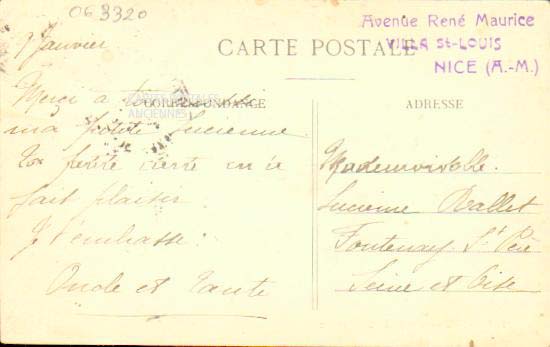 063320
Avenue René Maurice
VILLA St-LOUIS
NICE (A.-M.)
CARTE POSTALE
CARTES POSTALES
ANCIENNES
CORRESPONDANCE
ADRESSE
9 Janvier
Merci à
ma petite Lucienne.
Ta petite carte m'a
fait plaisir.
Je t'embrasse.
Oncle et Tante
Mademoiselle
Lucienne Ballet
Fontenay St Père
Seine et Oise